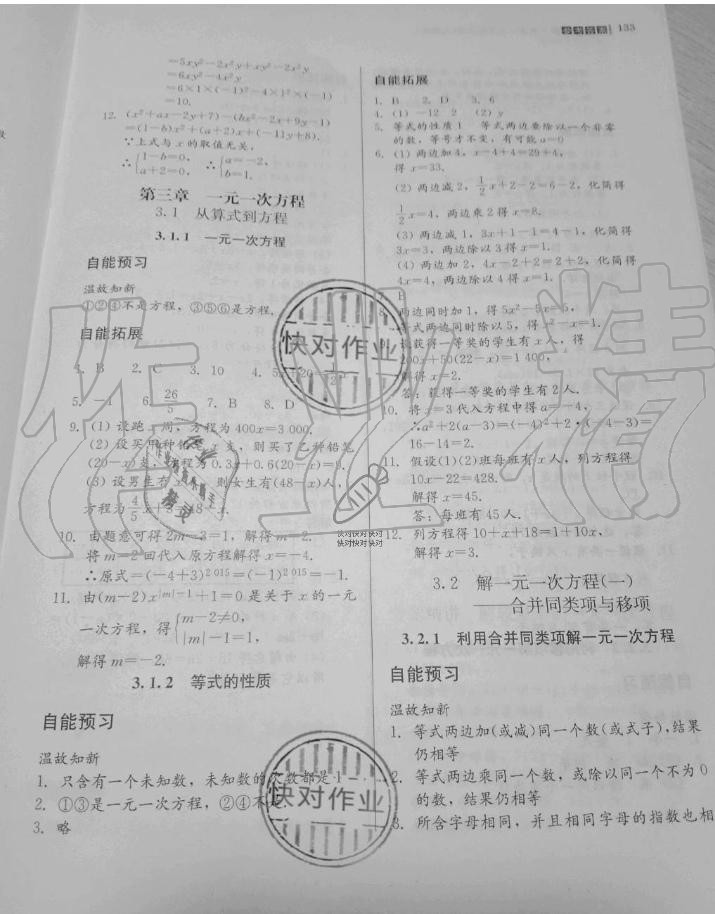 参考答案 133
=5xy²-2x²y+xy²-2x²y
=6xy²-4x²y
=6×1×(-1)²-4×1²×(-1)
=10.
12. (x²+ax-2y+7)-(bx²-2x+9y-1)
=(1-b)x²+(a+2)x+(-11y+8).
∵上式与x的取值无关,
∴{1-b=0, a+2=0, ∴{a=-2, b=1.
第三章 一元一次方程
3.1 从算式到方程
3.1.1 一元一次方程
自能预习
温故知新
①②④不是方程,③⑤⑥是方程.
自能拓展
1. B 2. C 3. 10
5. -1 6. 26/5 7. B 8. D
9. (1) 设跑x周,方程为400x=3 000.
(2) 设买甲种铅笔x支,则买了乙种铅笔
(20-x)支,方程为0.3x+0.6(20-x)=9.
(3) 设男生有x人,则女生有(48-x)人,
方程为4/5x+
10. 由题意可得2m-3=1,解得m=2.
将m=2回代入原方程解得x=-4.
∴原式=(-4+3)²⁰¹⁵=(-1)²⁰¹⁵=-1.
11. 由(m-2)x^|m|-1+1=0是关于x的一元
一次方程,得{m-2≠0, |m|-1=1,
解得m=-2.
3.1.2 等式的性质
自能预习
温故知新
1. 只含有一个未知数,未知数的次数都是1
2. ①③是一元一次方程,②④不是
3. 略
自能拓展
1. B 2. D 3. 6
4. (1) -12 2 (2) y
5. 等式的性质1 等式两边要除以一个非零
的数,等号才不变,有可能a=0
6. (1) 两边加4, x-4+4=29+4,
得x=33.
(2) 两边减2, 1/2x+2-2=6-2, 化简得
1/2x=4, 两边乘2得x=8.
(3) 两边减1, 3x+1-1=4-1, 化简得
3x=3, 两边除以3得x=1.
(4) 两边加2, 4x-2+2=2+2, 化简得
4x=4, 两边除以4得x=1.
7. B
8. 两边同时加1, 得5x²-5x=5,
等式两边同时除以5, 得x²-x=1.
9. 设获得一等奖的学生有x人, 得
200x+50(22-x)=1 400,
解得x=2.
答: 获得一等奖的学生有2人.
10. 将x=3代入方程中得a=-4,
∴a²+2(a-3)=(-4)²+2·(-4-3)=
16-14=2.
11. 假设(1)(2)班每班有x人, 列方程得
10x-22=428.
解得x=45.
答: 每班有45人.
12. 列方程得10+x+18=1+10x,
解得x=3.
3.2 解一元一次方程(一)
——合并同类项与移项
3.2.1 利用合并同类项解一元一次方程
自能预习
温故知新
1. 等式两边加(或减)同一个数(或式子),结果
仍相等
2. 等式两边乘同一个数,或除以同一个不为0
的数,结果仍相等
3. 所含字母相同,并且相同字母的指数也相
快对作业
快对作业
快对快对快对
快对快对快对
作业精